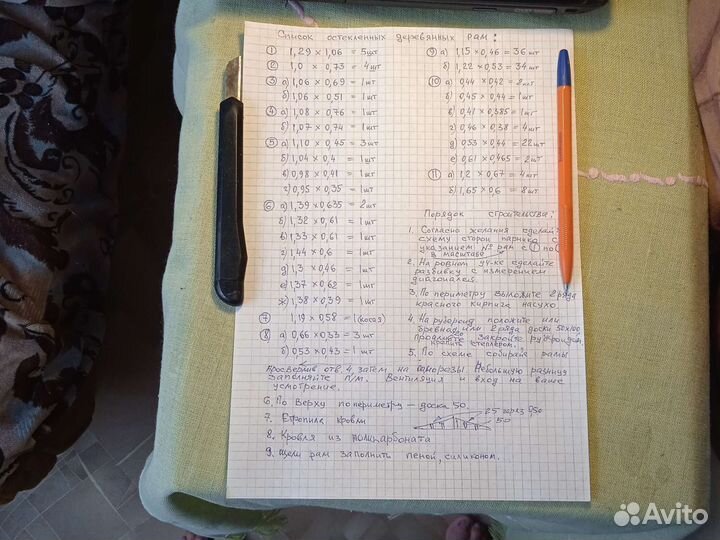 Список остекленных деревянных рам:
① 1,29 × 1,06 = 5 шт
② 1,0 × 0,73 = 4 шт
③ а) 1,06 × 0,69 = 1 шт
б) 1,06 × 0,51 = 1 шт
④ а) 1,08 × 0,76 = 1 шт
б) 1,07 × 0,74 = 1 шт
⑤ а) 1,10 × 0,45 = 3 шт
б) 1,04 × 0,4 = 1 шт
в) 0,98 × 0,41 = 1 шт
г) 0,95 × 0,35 = 1 шт
⑥ а) 1,39 × 0,635 = 2 шт
б) 1,32 × 0,61 = 1 шт
в) 1,33 × 0,61 = 1 шт
г) 1,44 × 0,6 = 1 шт
д) 1,3 × 0,46 = 1 шт
е) 1,37 × 0,62 = 1 шт
ж) 1,38 × 0,39 = 1 шт
⑦ 1,19 × 0,58 = 1 (косая)
⑧ а) 0,66 × 0,33 = 3 шт
б) 0,53 × 0,43 = 1 шт
⑨ а) 1,15 × 0,46 = 36 шт
б) 1,22 × 0,53 = 34 шт
⑩ а) 0,44 × 0,42 = 2 шт
б) 0,45 × 0,44 = 1 шт
в) 0,41 × 0,385 = 1 шт
г) 0,46 × 0,38 = 4 шт
д) 0,53 × 0,44 = 22 шт
е) 0,61 × 0,465 = 2 шт
⑪ а) 1,2 × 0,67 = 4 шт
б) 1,65 × 0,6 = 8 шт
Порядок строительства:
1. Согласно желания сделайте
схему сторон парника с
указанием № рам с ①
в масштабе
2. На ровном уч-ке сделайте
разбивку с измерением
диагоналей.
3. По периметру выложите 2 ряда
красного кирпича насухо.
4. На рубероид положите или
бревна, или 2 ряда доски 50×100,
закройте рубероидом,
крепить степлером.
5. По схеме собирай рамы
Просверлив отв. 4, затем на саморезы. Небольшую разницу
заполняйте п/м. Вентиляция и вход на ваше
усмотрение.
6. По верху по периметру — доска 50.
7. Стропила кровли
25
50
8. Кровля из поликарбоната
9. Щели рам заполнить пеной, силиконом.
Avito